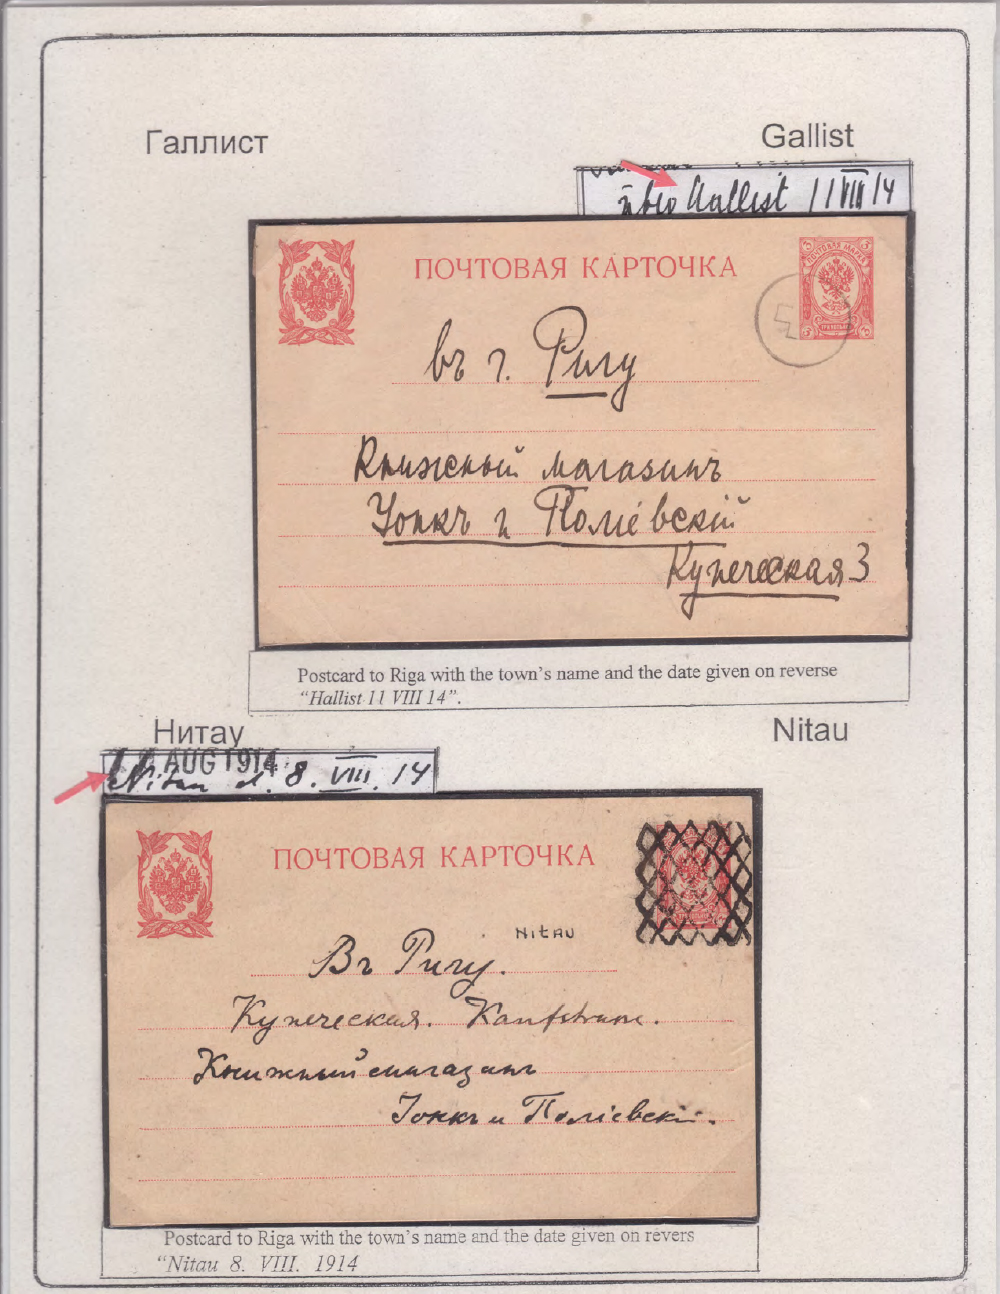 Галлист
Gallist
Hallist 11 VIII 14
ПОЧТОВАЯ КАРТОЧКА
ПОЧТОВАЯ МАРКА
въ г. Ригу
Книжный магазинъ
Іонкъ и Поліевскій
Купеческая 3
Postcard to Riga with the town's name and the date given on reverse
“Hallist 11 VIII 14”.
Нитау
Nitau
AUG 1914
Nitau d. 8. VIII. 14
ПОЧТОВАЯ КАРТОЧКА
NitAU
Въ Ригу.
Купеческая. Kaufstrasse.
Книжный магазинъ
Іонкъ и Поліевскій.
Postcard to Riga with the town's name and the date given on revers
“Nitau 8. VIII. 1914